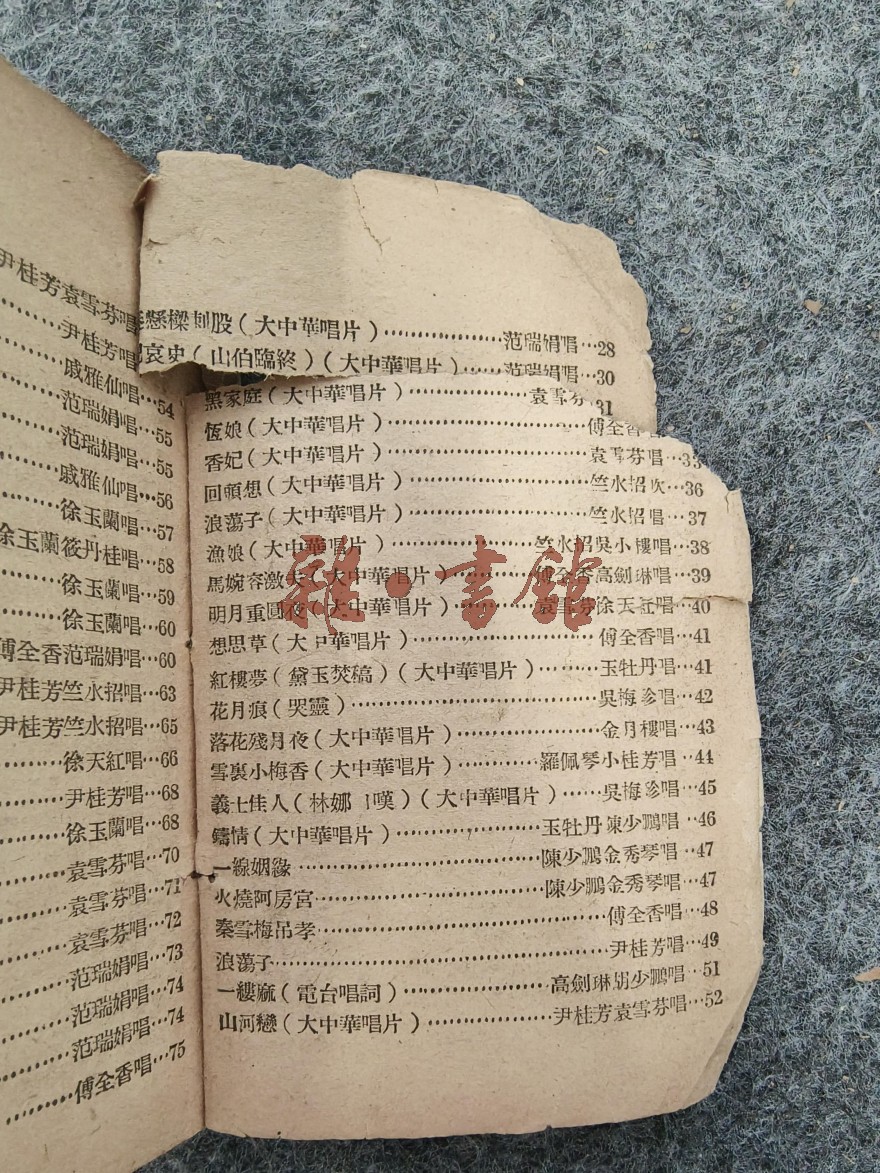 尹桂芳袁雪芬唱
尹桂芳唱
戚雅仙唱…54
范瑞娟唱…55
范瑞娟唱…55
戚雅仙唱…56
徐玉蘭唱…57
徐玉蘭筱丹桂唱…58
徐玉蘭唱…59
徐玉蘭唱…60
傅全香范瑞娟唱…60
尹桂芳竺水招唱…63
尹桂芳竺水招唱…65
徐天紅唱…66
尹桂芳唱…68
徐玉蘭唱…68
袁雪芬唱…70
袁雪芬唱…71
袁雪芬唱…72
范瑞娟唱…73
范瑞娟唱…74
范瑞娟唱…74
傅全香唱…75
懸樑刺股（大中華唱片）……范瑞娟唱…28
哀史（山伯臨終）（大中華唱片）……范瑞娟唱…30
黑家庭（大中華唱片）……袁雪芬 31
恆娘（大中華唱片）……傅全香
香妃（大中華唱片）……袁雪芬唱…33
回頭想（大中華唱片）……竺水招 …36
浪蕩子（大中華唱片）……竺水招唱…37
漁娘（大中華唱片）……竺水招吳小樓唱…38
馬婉容激夫（大中華唱片）……傅全香高劍琳唱…39
明月重圓夜（大中華唱片）……袁雪芬徐天紅唱…40
想思草（大中華唱片）……傅全香唱…41
紅樓夢（黛玉焚稿）（大中華唱片）……玉牡丹唱…41
花月痕（哭靈）……吳梅珍唱…42
落花殘月夜（大中華唱片）……金月樓唱…43
雪裏小梅香（大中華唱片）……羅佩琴小桂芳唱…44
義士佳人（林娜 嘆）（大中華唱片）…吳梅珍唱…45
鑄情（大中華唱片）……玉牡丹陳少鵬唱…46
一線姻緣……陳少鵬金秀琴唱…47
火燒阿房宮……陳少鵬金秀琴唱…47
秦雪梅吊孝……傅全香唱…48
浪蕩子……尹桂芳唱…49
一縷蔴（電台唱詞）……高劍琳胡少鵬唱…51
山河戀（大中華唱片）……尹桂芳袁雪芬唱…52
雜·書館